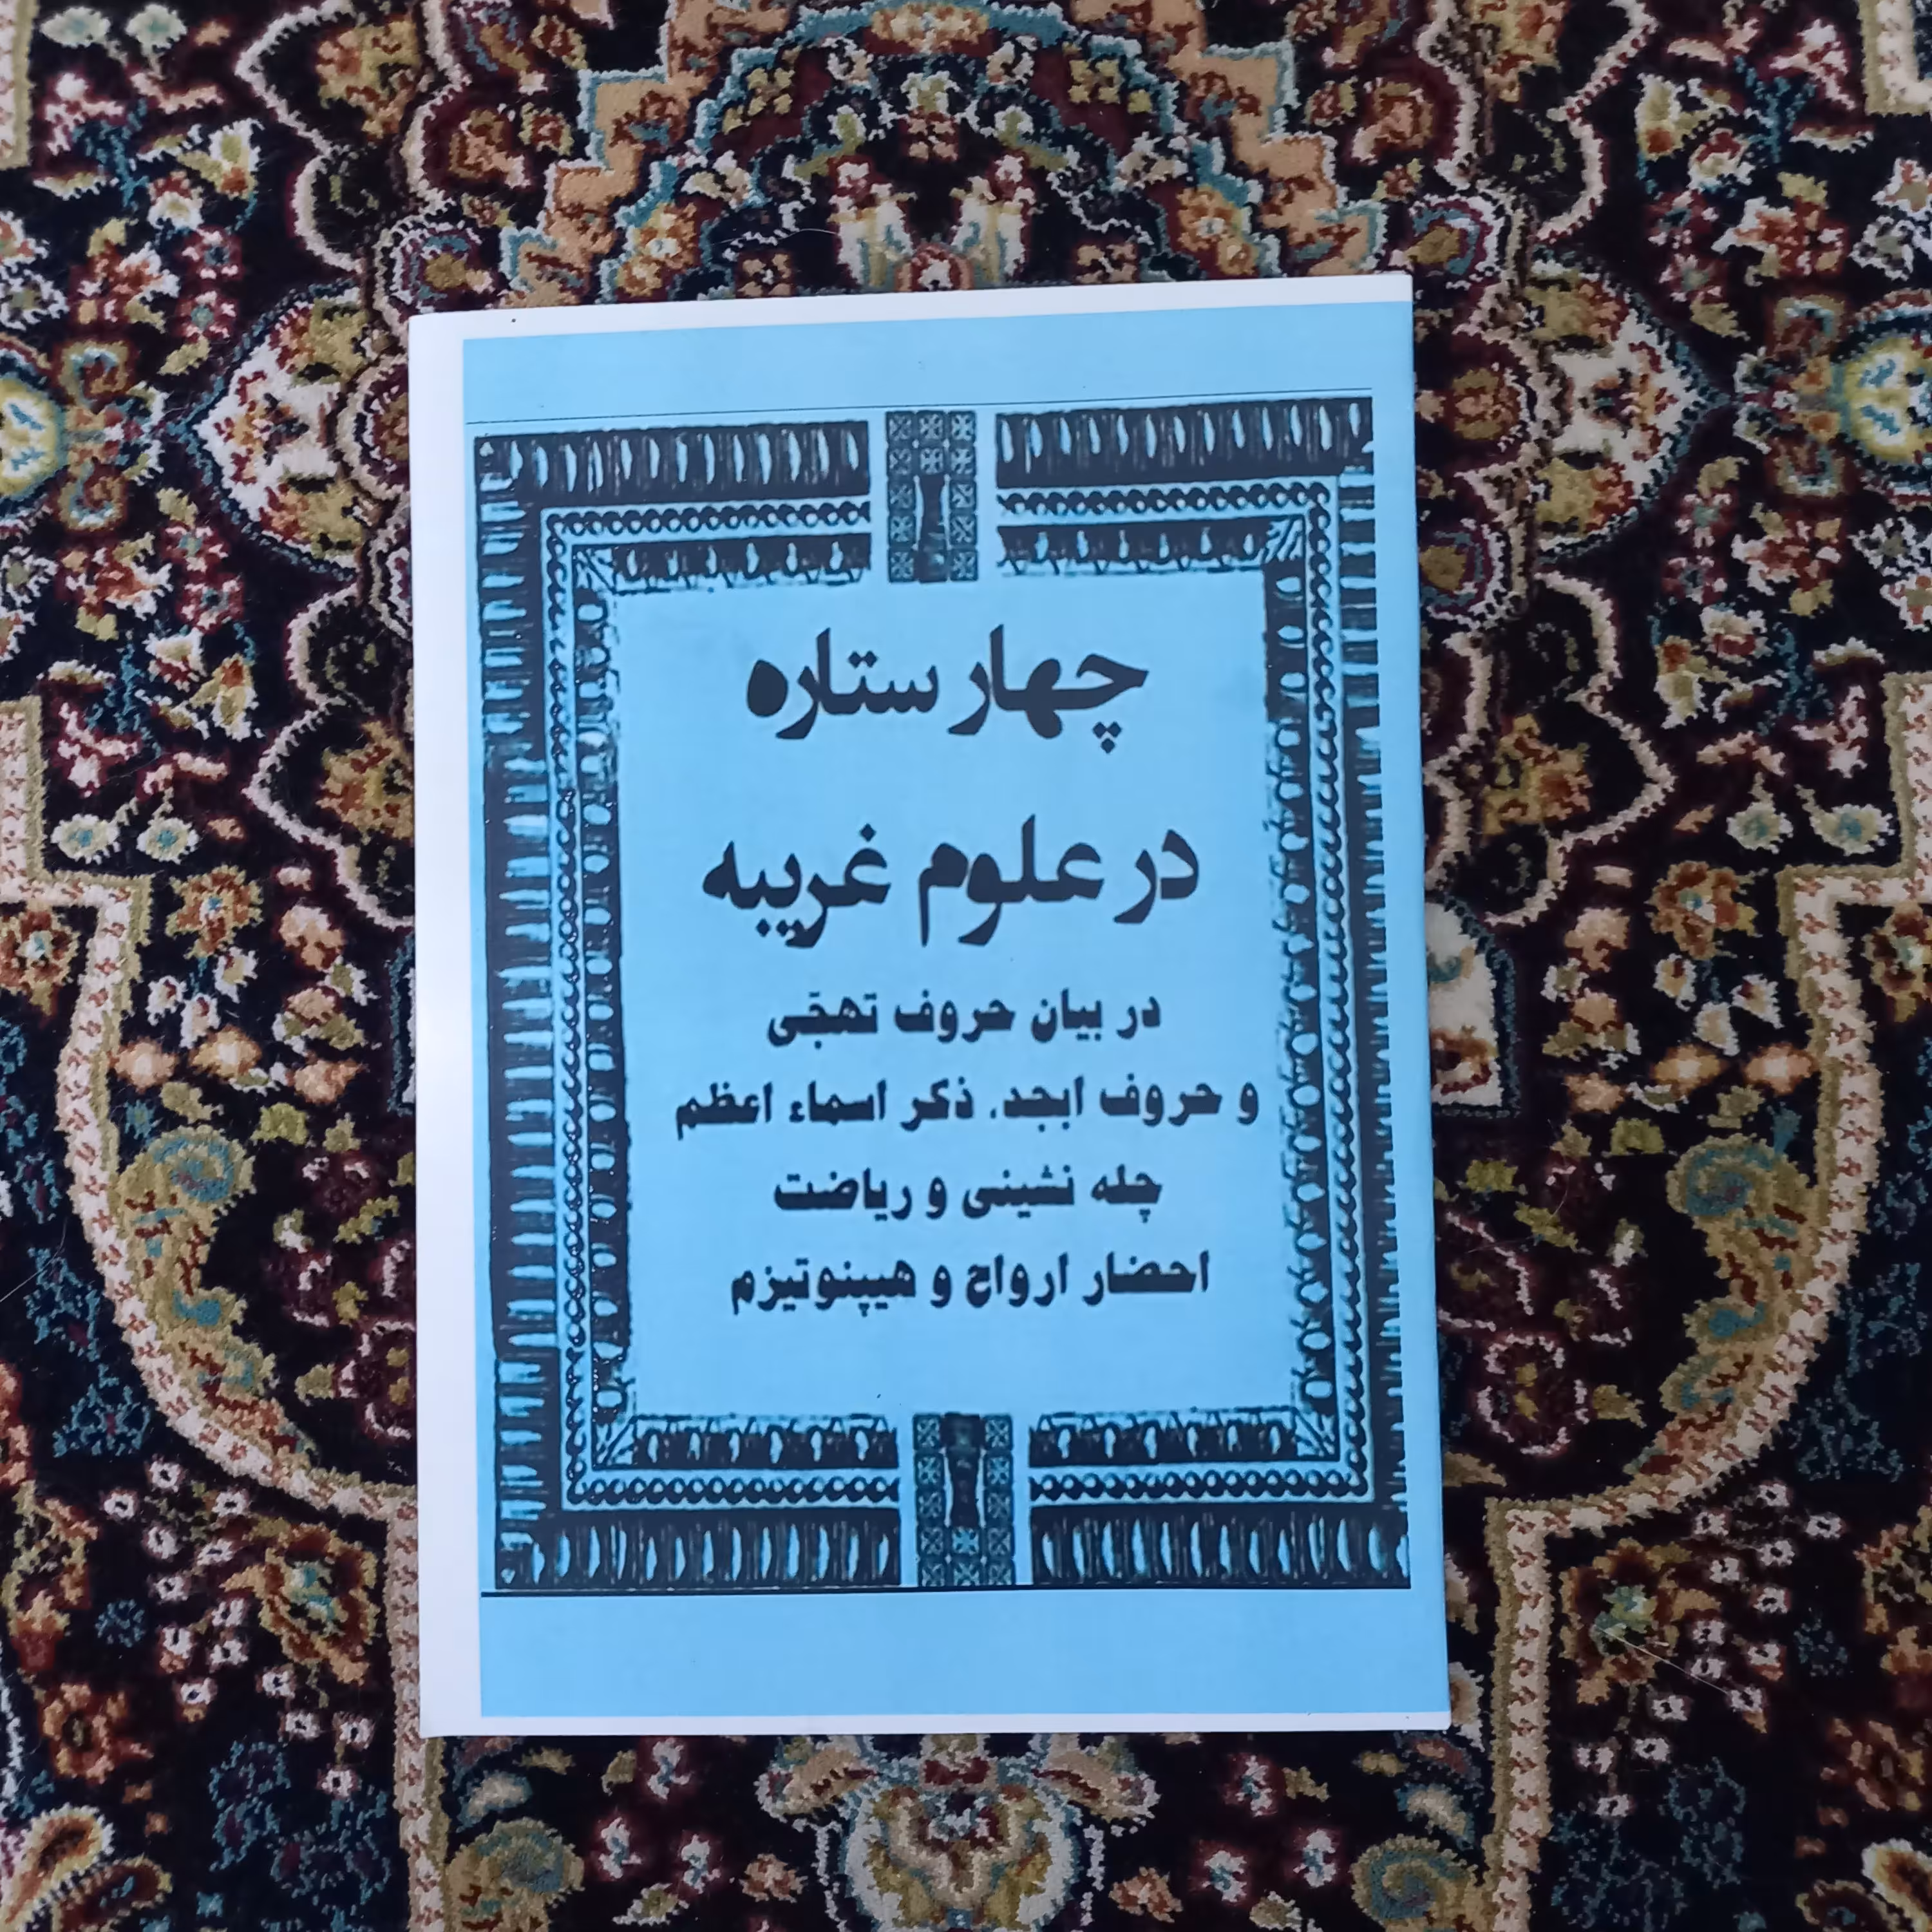 چهار ستاره
در علوم غریبه
در بیان حروف تهجّی
و حروف ابجد. ذکر اسماء اعظم
چله نشینی و ریاضت
احضار ارواح و هیپنوتیزم